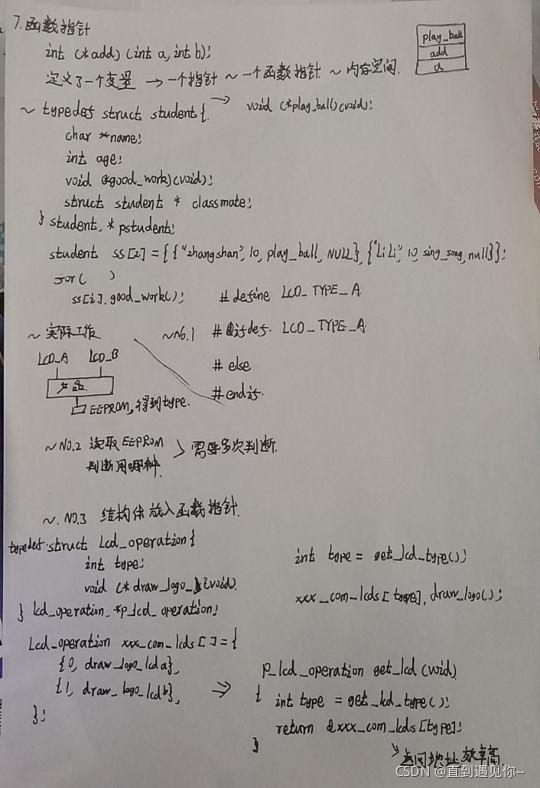 7.函数指针
int (*add) (int a, int b);
play_ball
add
a
定义了一个变量 → 一个指针 ~ 一个函数指针 ~ 内存空间.
~ typedef struct student{
→ void (*play_ball)(void);
char *name;
int age;
void (*good_work)(void);
struct student * classmate;
} student, * pstudent;
student ss[2] = { {"zhangshan", 10, play_ball, NULL}, {"LiLi", 10, sing_song, null}};
for( )
ss[i].good_work();
# define LCD_TYPE_A
~ 实际工作
~NO.1 # ifdef. LCD_TYPE_A
LCD_A LCD_B
# else
产品
# endif.
EEPROM, 得到type.
~NO.2 读取EEPROM
判断用哪种
> 需要多次判断.
~. NO.3 结构体放入函数指针.
typedef struct Lcd_operation{
int type;
void (*draw_logo)(void).
} lcd_operation, *p_lcd_operation;
int type = get_lcd_type();
xxx_com_lcds[type].draw_logo();
Lcd_operation xxx_com_lcds[] = {
{0, draw_logo_lcda},
{1, draw_logo_lcdb},
};
⇒
p_lcd_operation get_lcd (void)
{ int type = get_lcd_type();
return &xxx_com_lcds[type];
}
返回地址效率高
CSDN @直到遇见你--